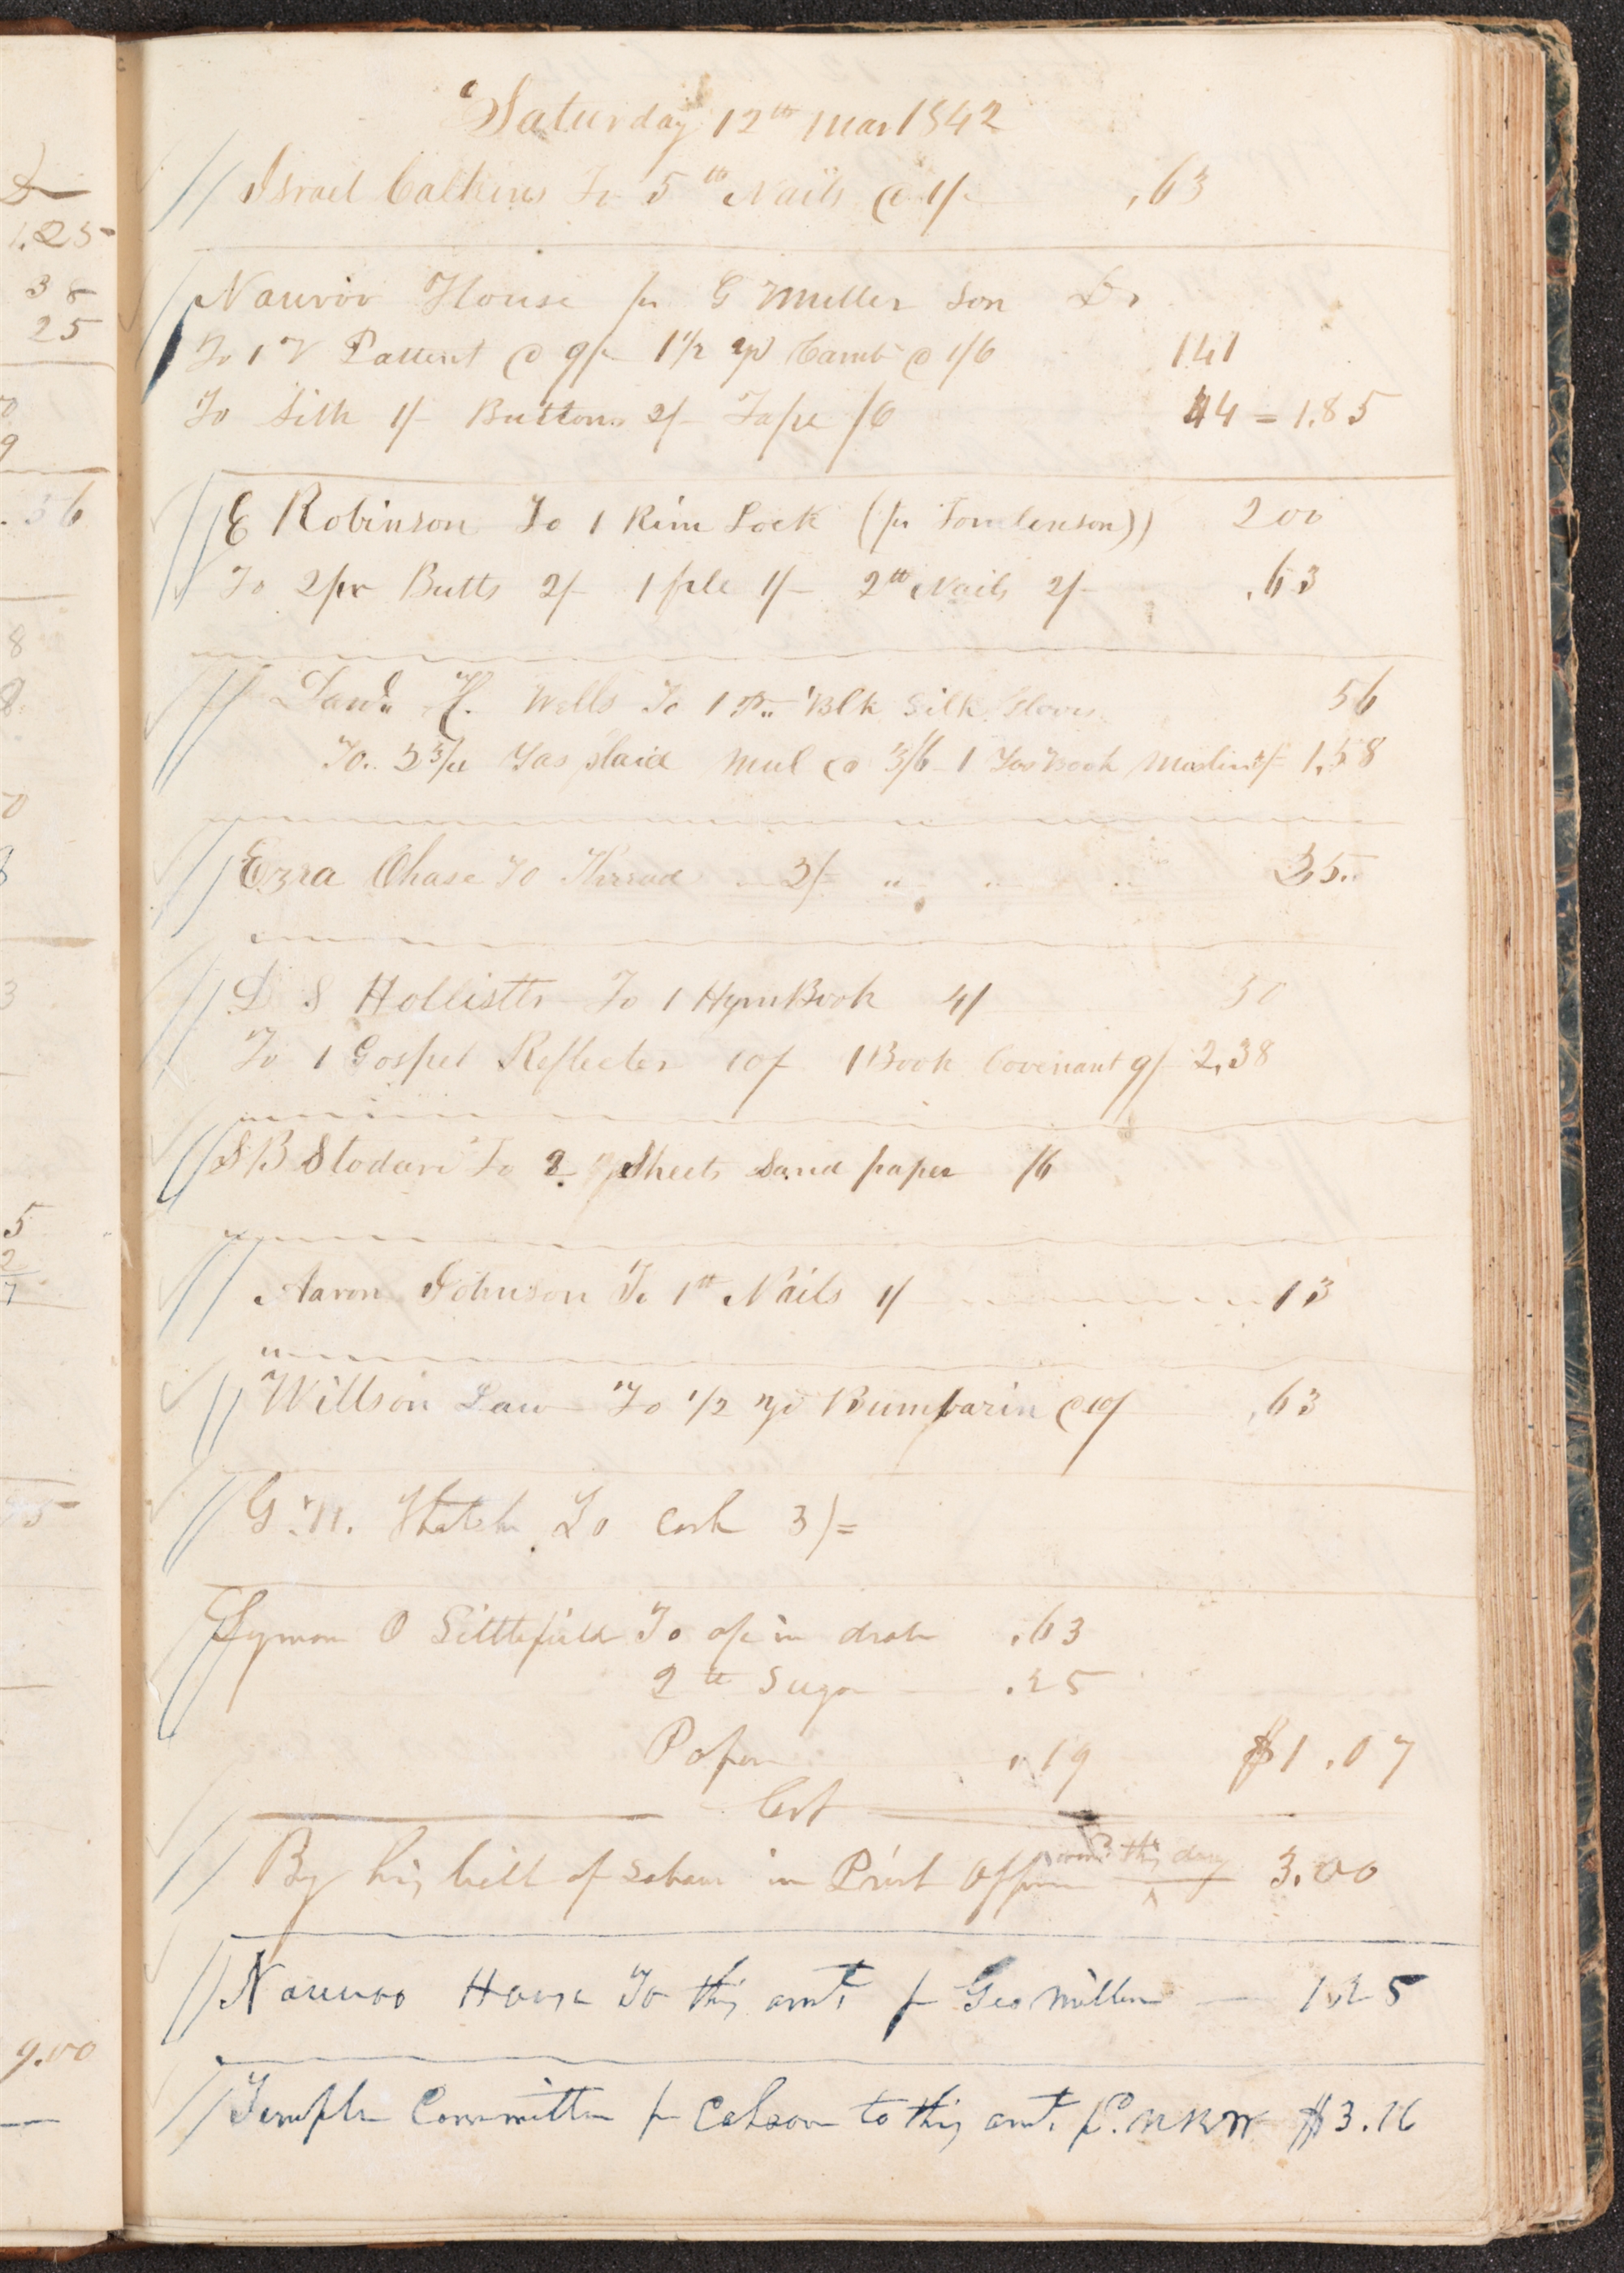 Saturday 12th Mar 1842
Israel Calkins To 5 lb Nails @ 1/- ,63
Nauvoo House pr G Miller Son Dr
To 1 V Pattent @ 9/- 1 1/2 yd Camb @ 1/6 141
To Silk 1/- Buttons 2/- Tape /6 44 = 1.85
E Robinson To 1 Rim Lock (pr Tomlenson)) 200
To 2 pr Butts 2/- 1 file 1/- 2 lb Nails 2/- .63
Danl. H. Wells To 1 Pr. Blk Silk Gloves 56
To. 3 Yas plaid Mul @ 3/6 1 Book Muslin 1,58
Ezra Chase To Thread 2/- 25
D S Hollister To 1 Hym Book 4/ 50
To 1 Gospel Reflecter 10/ 1 Book Covenant 9/- 2,38
S B Stodard To 2 Sheets Sand paper /6
Aaron Johnson To 1 lb Nails 1/ 13
Willson Law To 1/2 yd Bumbazin @ 10/ ,63
G. W. Thatcher To Cash 3/=
Lyman O Littlefield To drab .63
2 lb Sugar .25
Paper .19 $1.07
Cr
By his bill of Labour in Print Office this day 3.00
Nauvoo House To this amt. pr Geo Miller 1.25
Temple Committee pr Cahoon to this amt. P. N K W $3.16
D
1.25
38
25
.36
8
8
3
5
2
7
9.00